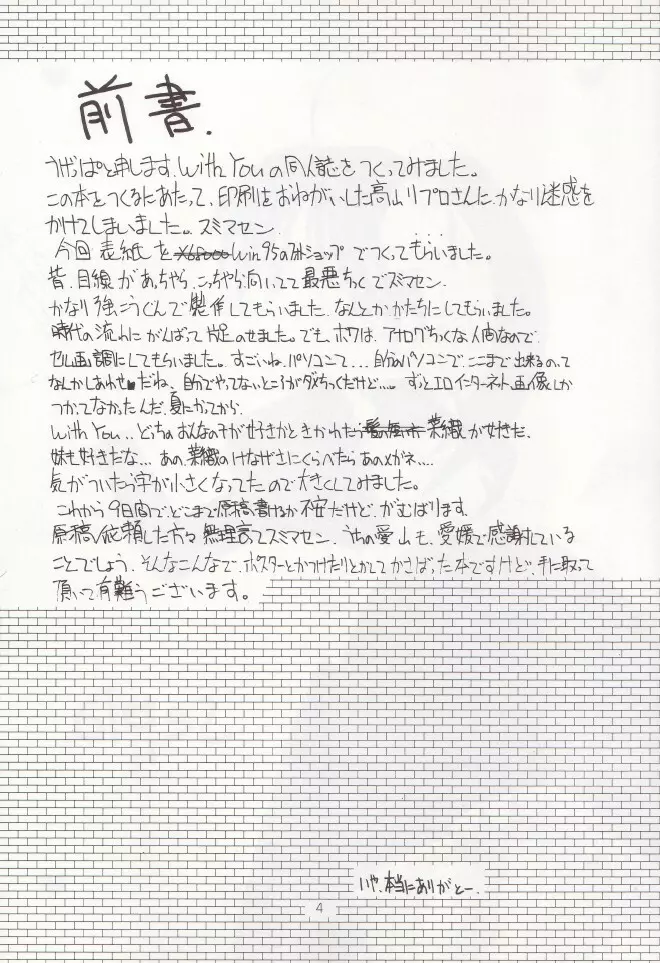 前書.
うげっぱと申します。With Youの同人誌をつくってみました。
この本をつくるにあたって、印刷をおねがいした高山リプロさんに、かなり迷惑を
かけてしまいました。スミマセン.
今回表紙をX68000 Win95のフォトショップでつくってもらいました。
昔、目線があっちゃら、こっちゃら向いてて最悪ちくでスミマセン.
かなり強こうぐんで製作してもらいました.なんとかかたちにしてもらいました。
時代の流れにがんばって片足のせました。でも、ボクは、アナログちっくな人間なので、
セル画調にしてもらいました。すごいね、パソコンて...自分のパソコンで、ここまで出来るのって
なんかしあわせ♥だね、自分でやってないところがダメちっくだけど...。ずっとエロインターネット画像しか
つかってなかったんだ、夏にかってから.
With You..どっちのおんなの子が好きかときかれたら 菜織が好きだ.
妹も好きだな...あの、菜織のけなげさにくらべたらあのメガネ....
気がついたら字が小さくなってたので大きくしてみました。
これから9日間で、どこまで原稿書けるか不安だけど、がむばります.
原稿依頼した方々無理言ってスミマセン.うちの愛山も、愛媛で感謝している
ことでしょう.そんなこんなで、ポスターとかつけたりとかしてかさばった本ですけど、手に取って
頂いて有難うございます。
いや、本当にありがとー.
4